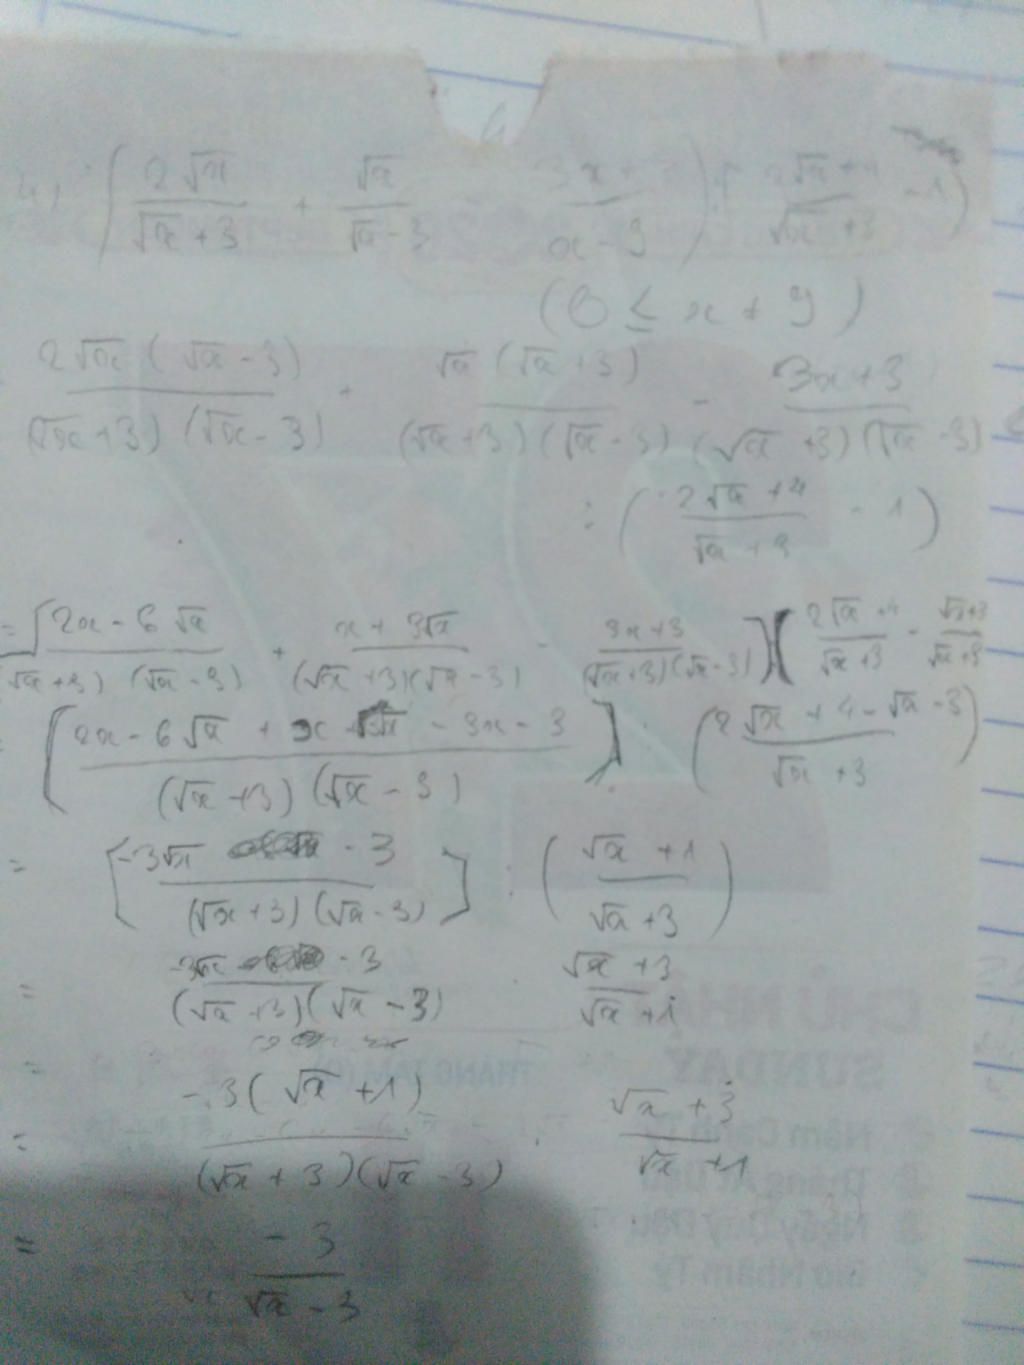 4) ( 2√x / √x + 3 + √x / √x - 3 - 3x + 3 / x - 9 ) : ( 2√x + 4 / √x + 3 - 1 )
( 0 ≤ x ≠ 9 )
2√x ( √x - 3 ) / (√x + 3) (√x - 3) + √x ( √x + 3 ) / (√x + 3) (√x - 3) - 3x + 3 / (√x + 3) (√x - 3)
: ( 2√x + 4 / √x + 3 - 1 )
= [ 2x - 6√x / (√x + 3) (√x - 3) + x + 3√x / (√x + 3) (√x - 3) - 3x + 3 / (√x + 3) (√x - 3) ] : ( 2√x + 4 / √x + 3 - √x + 3 / √x + 3
[ 2x - 6√x + x + 3√x - 3x - 3 / (√x + 3) (√x - 3) ] : ( 2√x + 4 - √x - 3 / √x + 3 )
= [ -3√x - 3 / (√x + 3) (√x - 3) ] : ( √x + 1 / √x + 3 )
= -3√x - 3 / (√x + 3) (√x - 3) . √x + 3 / √x + 1
= -3 ( √x + 1 ) / (√x + 3) (√x - 3) . √x + 3 / √x + 1
= -3 / √x - 3
CHỦ NHẬT
SUNDAY